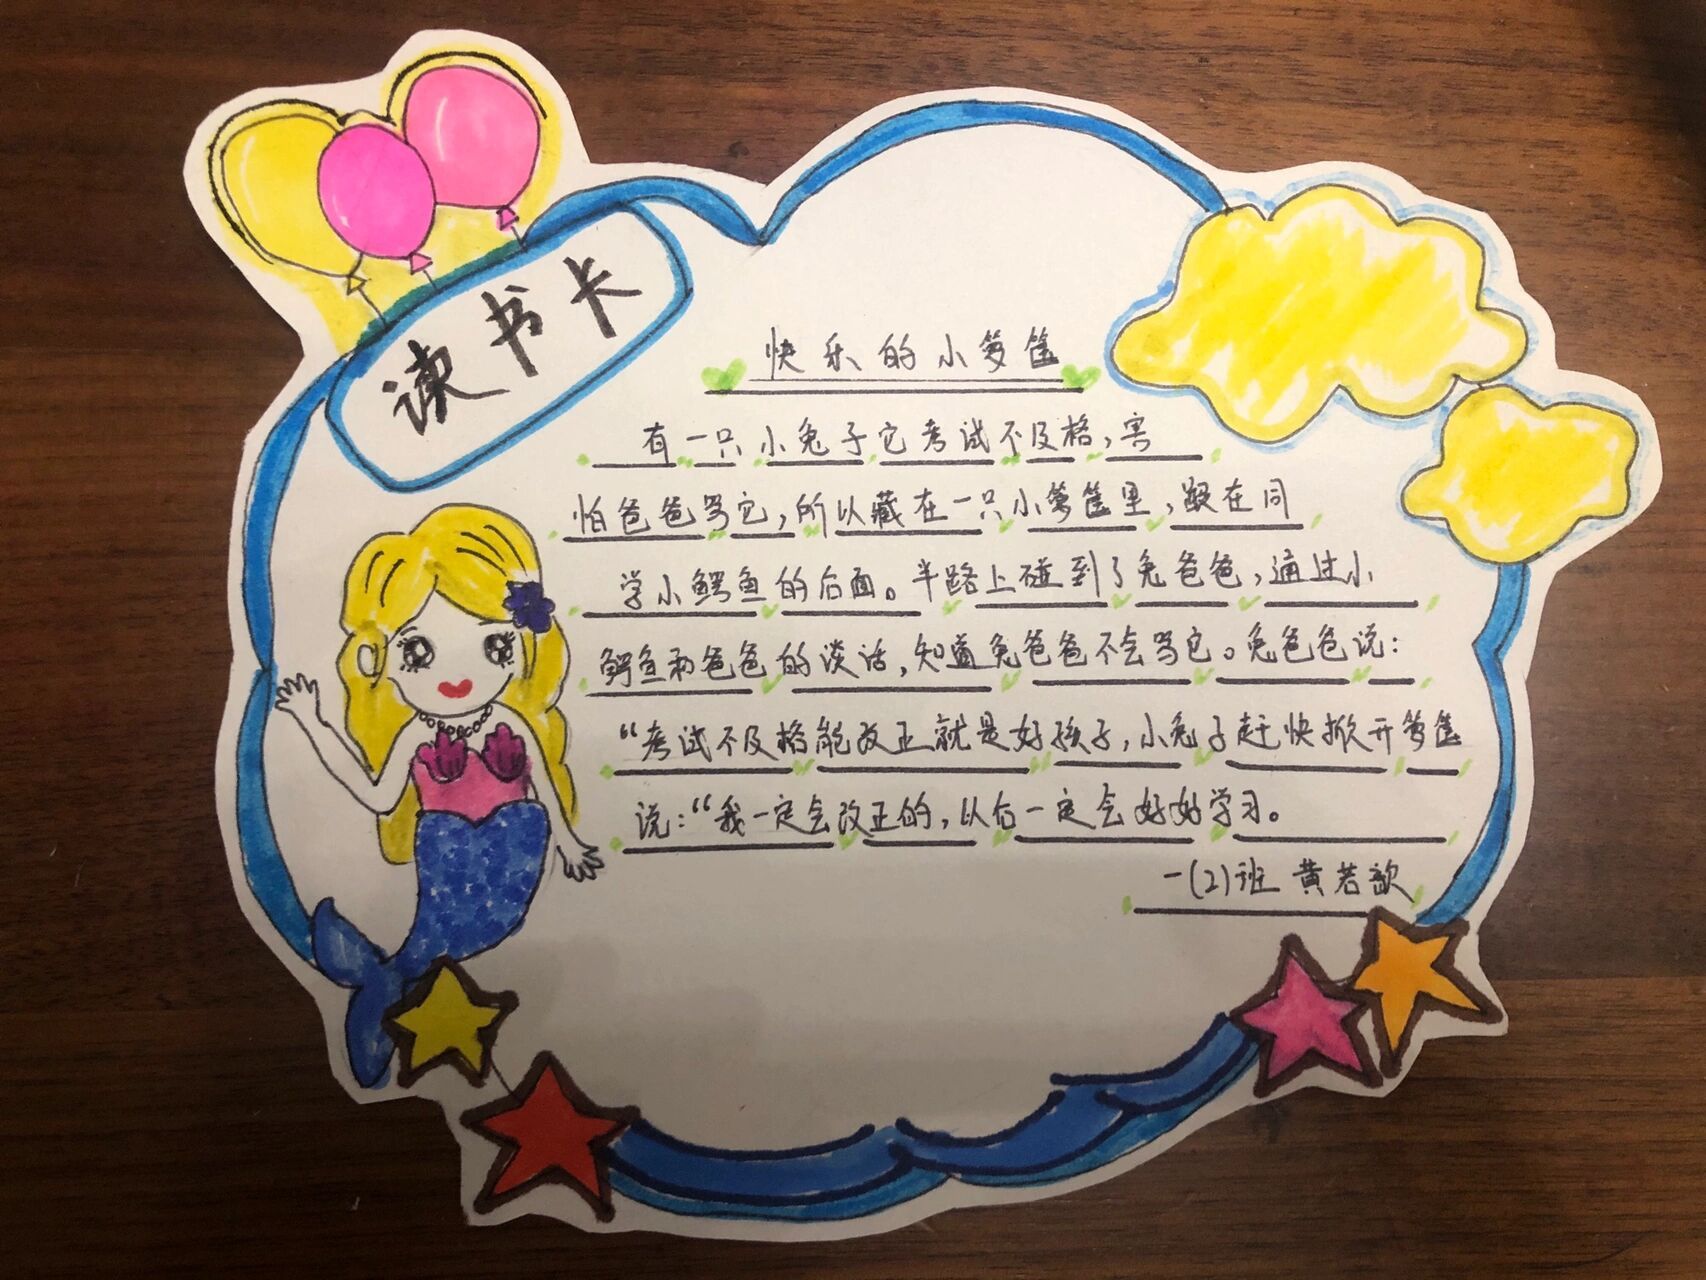 读书卡
快乐的小箩筐
有一只小兔子它考试不及格,害
怕爸爸骂它,所以藏在一只小箩筐里,跟在同
学小鳄鱼的后面。半路上碰到了兔爸爸,通过小
鳄鱼和爸爸的谈话,知道兔爸爸不会骂它。兔爸爸说:
“考试不及格能改正就是好孩子,小兔子赶快掀开箩筐
说:“我一定会改正的,以后一定会好好学习。
一(2)班 黄若歆